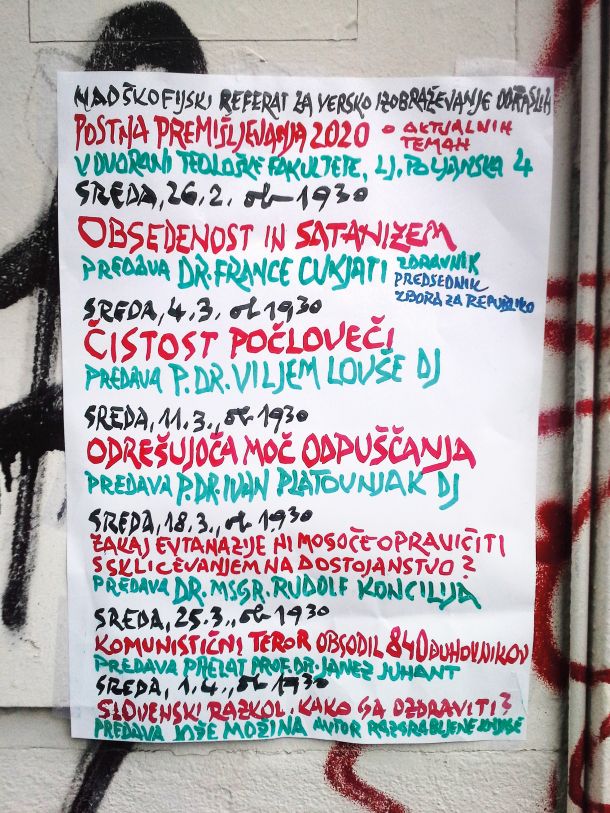 NADŠKOFIJSKI REFERAT ZA VERSKO IZOBRAŽEVANJE ODRASLIH
POSTNA PREMIŠLJEVANJA 2020 O AKTUALNIH
TEMAH
V DVORANI TEOLOŠKE FAKULTETE, LJ. POLJANSKA 4
SREDA, 26.2. ob 1930
OBSEDENOST IN SATANIZEM
PREDAVA DR. FRANCE CUKJATI ZDRAVNIK
PREDSEDNIK
ZBORA ZA REPUBLIKO
SREDA, 4.3. ob 1930
ČISTOST POČLOVEČI
PREDAVA P. DR. VILJEM LOVŠE DJ
SREDA, 11.3., ob 1930
ODREŠUJOČA MOČ ODPUŠČANJA
PREDAVA P. DR. IVAN PLATOVNJAK DJ
SREDA, 18.3., ob 1930
ZAKAJ EVTANAZIJE NI MOGOČE OPRAVIČITI
S SKLICEVANJEM NA DOSTOJANSTVO?
PREDAVA DR. MSGR. RUDOLF KONCILIJA
SREDA, 25.3., ob 1930
KOMUNISTIČNI TEROR OBSODIL 840 DUHOVNIKOV
PREDAVA PRELAT PROF. DR. JANEZ JUHANT
SREDA, 1.4., ob 1930
SLOVENSKI RAZKOL. KAKO GA OZDRAVITI?
PREDAVA JOŽE MOŽINA AVTOR RAZGRABLJENE KNJIGE